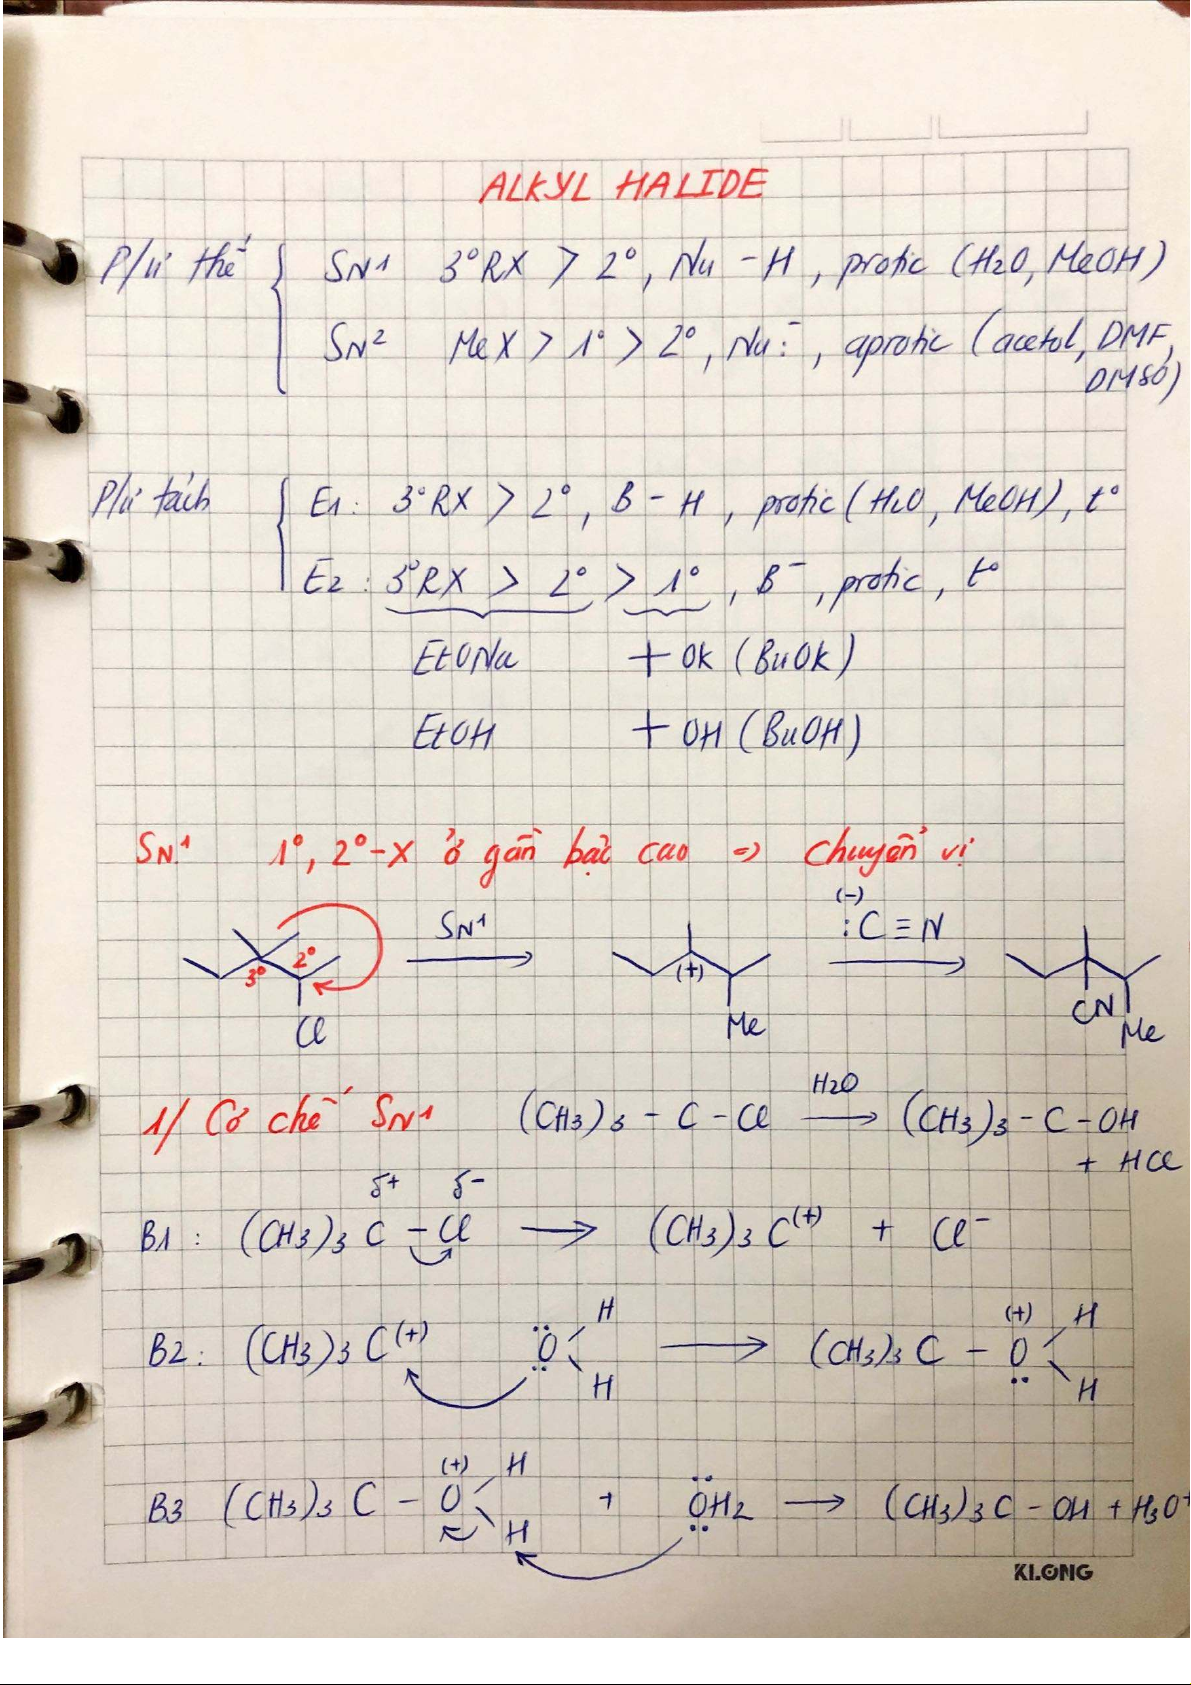 ALKYL HALIDE
P/ư thế { SN1 3°RX > 2°, Nu - H, protic (H2O, MeOH)
SN2 MeX > 1° > 2°, Nu:⁻, aprotic (acetol, DMF,
DMSO)
P/ư tách { E1: 3°RX > 2°, B - H, protic (H2O, MeOH), t°
E2: 3°RX > 2° > 1°, B⁻, protic, t°
EtONa + OK (BuOK)
EtOH + OH (BuOH)
SN1 1°, 2°-X ở gần bậc cao => chuyển vị
3° 2° Cl SN1 (+) Me (-) :C≡N CN Me
1/ Cơ chế SN1 (CH3)3 - C - Cl H2O → (CH3)3 - C - OH
+ HCl
δ+ δ-
B1: (CH3)3 C - Cl → (CH3)3 C(+) + Cl⁻
B2: (CH3)3 C(+) O H H → (CH3)3 C - O (+) H H
B3 (CH3)3 C - O (+) H H + OH2 → (CH3)3 C - OH + H3O+
KLONG